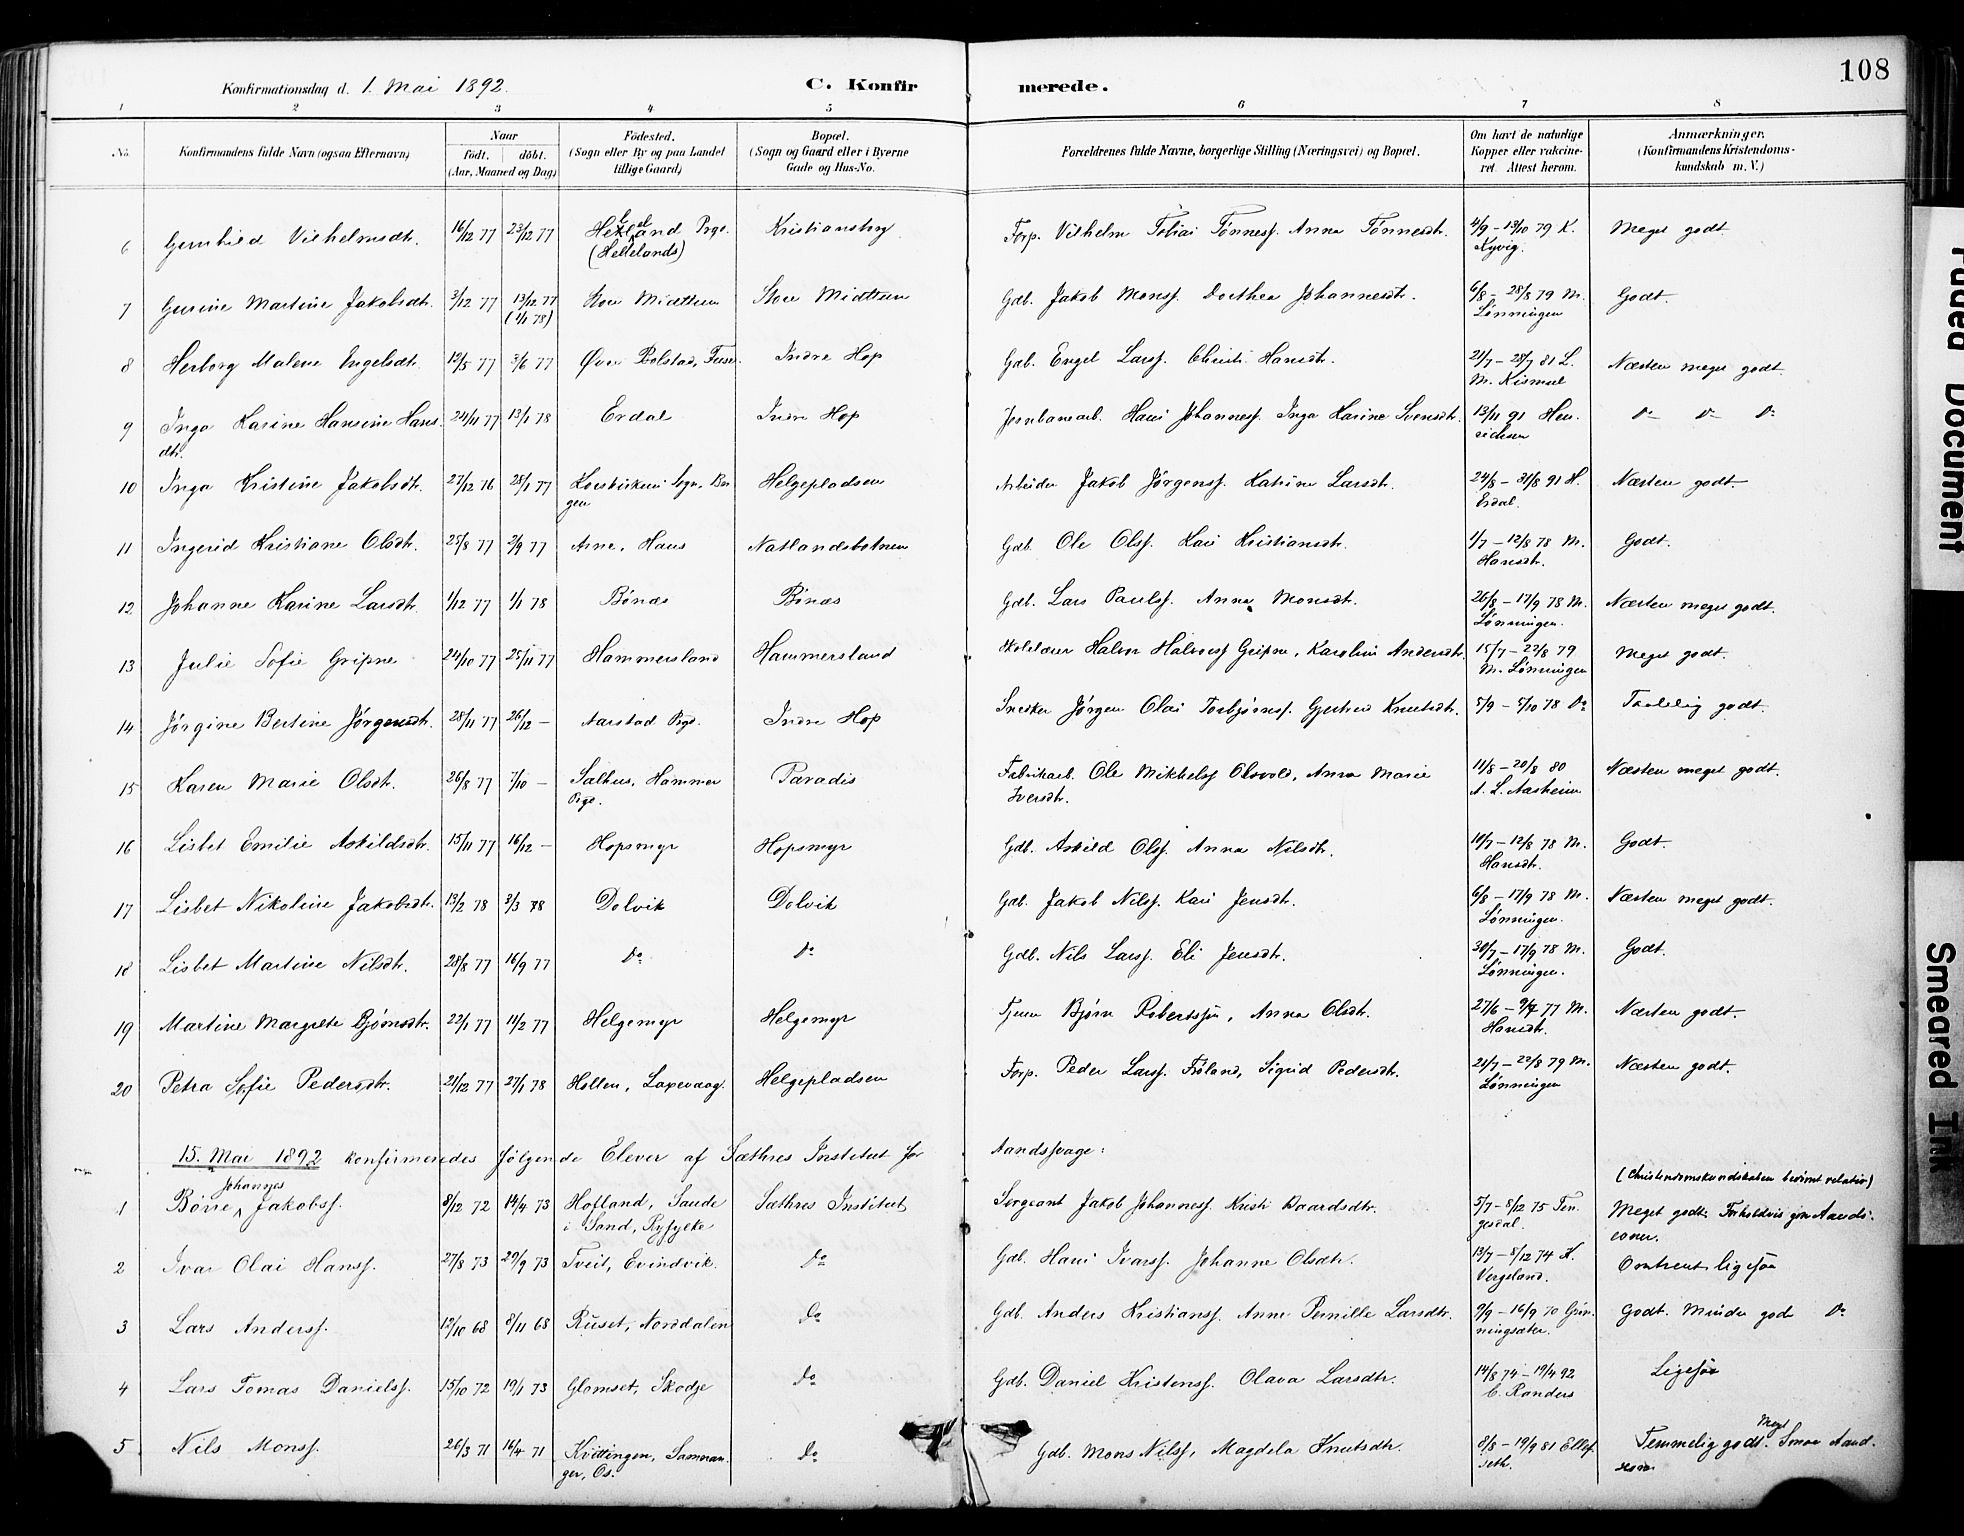 108
Konfirmationsdag d. 1. Mai 1892. C. Konfirmerede.
1 2 3 4 5 6 7 8
No. Konfirmandens fulde Navn (ogsaa Efternavn) Naar födt. döbt. (Aar, Maaned og Dag) Födested. (Sogn eller By og paa Landet tillige Gaard) Bopæl. (Sogn og Gaard eller i Byerne Gade og Hus-No. Forældrenes fulde Navne, borgerlige Stilling (Næringsvei) og Bopæl. Om havt de naturlige Kopper eller vakcineret. Attest herom. Anmærkninger. (Konfirmandens Kristendomskundskab m. V.)
6 Gunhild Vilhelmsdtr. 16/12 77 23/12 77 Helland Prgd. (Hellelands) Kristiansborg Forp. Vilhelm Tobias Tönness. Anna Tönnesdtr. 4/9 – 13/10 79 K. Kyvig. Meget godt.
7 Gurine Martine Jakobsdtr. 3/12 77 13/12 77 (1/1 78) Store Midttun Store Midttun Gdb. Jakob Monss. Dorthea Johannesdtr. 6/8 – 28/8 79 M. Lönningen Godt.
8 Herborg Malene Engelsdtr. 12/5 77 3/6 77 Øvre Bolstad, Fuse. Indre Hop Gdb. Engel Larss. Christi Hansdtr. 21/7 – 28/7 81 L. M. Kismul Næsten meget godt.
9 Inga Karine Hansine Hansdtr. 24/11 77 13/1 78 Erdal Indre Hop Jernbanearb. Hans Johanness. Inga Karine Svensdtr. 13/11 91 Henrichsen Do Do Do
10 Inga Kristine Jakobsdtr. 27/12 76 28/1 77 Korskirkens Sogn, Bergen Helgepladsen Arbeider Jakob Jörgenss. Katrine Larsdtr. 24/8 – 31/8 91 H. Erdal. Næsten godt.
11 Ingerid Kristiane Olsdtr. 25/8 77 2/9 77 Arne, Haus Natlandsbotnen Gdb. Ole Olss. Kari Kristiansdtr. 1/7 – 12/8 78 M. Hansdtr. Godt.
12 Johanne Karine Larsdtr. 1/12 77 1/1 78 Bönæs Bönæs Gdb. Lars Paulss. Anna Monsdtr. 26/8 – 17/9 78 M. Lönningen. Næsten meget godt.
13 Julie Sofie Gripne 24/10 77 25/11 77 Hammersland Hammersland Skolelærer Halvor Halvorss. Gripne, Karoline Andersdtr. 15/7 – 22/8 79 M. Lönningen Meget godt.
14 Jörgine Bertine Jörgensdtr. 28/11 77 26/12 – Aarstad Prgd. Indre Hop Snedker Jörgen Olai Torbjörnss. Gjertrud Knutsdtr. 5/9 – 5/10 78 Do Taalelig godt.
15 Karen Marie Olsdtr. 26/8 77 7/10 – Salhus, Hammer Prgd. Paradis Fabrikarb. Ole Mikkelss. Olsvold, Anna Marie Iversdtr. 11/8 – 20/8 80 A. L. Aasheim Næsten meget godt.
16 Lisbet Emilie Askildsdtr. 15/11 77 16/12 – Hopsmyr Hopsmyr Gdb. Askild Olss. Anna Nilsdtr. 10/7 – 12/8 78 M. Hansdtr. Godt.
17 Lisbet Nikoline Jakobsdtr. 13/2 78 3/3 78 Dolvik Dolvik Gdb. Jakob Nilss. Kari Jensdtr. 6/8 – 17/9 78 M. Lönningen. Næsten meget godt.
18 Lisbet Martine Nilsdtr. 28/8 77 16/9 77 Do Do Gdb. Nils Larss. Eli Jensdtr. 30/7 – 17/9 78 M. Lönningen. Godt.
19 Martine Margrete Bjørnsdtr. 22/1 77 11/2 77 Helgemyr Helgemyr Bjørn Robertssön, Anna Olsdtr. 27/6 – 9/7 77 M. Hansdtr. Næsten godt.
20 Petra Sofie Pedersdtr. 21/12 77 27/1 78 Hollen, Laxevaag. Helgepladsen Forp. Peder Larss. Fröland, Sigrid Pedersdtr. 21/7 – 22/8 79 M. Lönningen Næsten godt.
15. Mai 1892 konfirmeredes følgende Elever af Sæthres Institut for Aandssvage:
(Christendomskundskaben berømt relativ)
1 Börre Johannes Jakobss. 8/12 72 14/4 73 Hofland, Saude i Sand, Ryfylke Sæthres Institut Sergeant Jakob Johanness. Kristi Baardsdtr. 5/7 – 8/12 75 Tengesdal. Meget godt.
2 Ivar Olai Hanss. 27/8 73 29/9 73 Tveit, Evindvik. Do Gdb. Hans Ivarss. Johanne Olsdtr. 13/7 – 8/12 74 K. Vergeland. Omtrent ligesaa
3 Lars Anderss. 12/10 68 8/11 68 Ruset, Norddalen Do Gdb. Anders Kristianss. Anne Pernille Larsdtr. 9/9 – 16/9 70 Grönningsæter. Godt. Mindre gode Do
4 Lars Tomas Danielss. 15/10 72 19/1 73 Glomset, Skodje Do Gdb. Daniel Kristenss. Olava Larsdtr. 14/8 74 – 19/4 92 C. Randers Ligesaa
5 Nils Monss. 26/3 71 16/4 71 Kvittingen, Samnanger, Os. Do Gdb. Mons Nilss, Magdela Knutsdtr. 8/8 – 19/9 81 Ellefseth. Temmelig godt. Meget Smaa
Faded Document
Smeared Ink